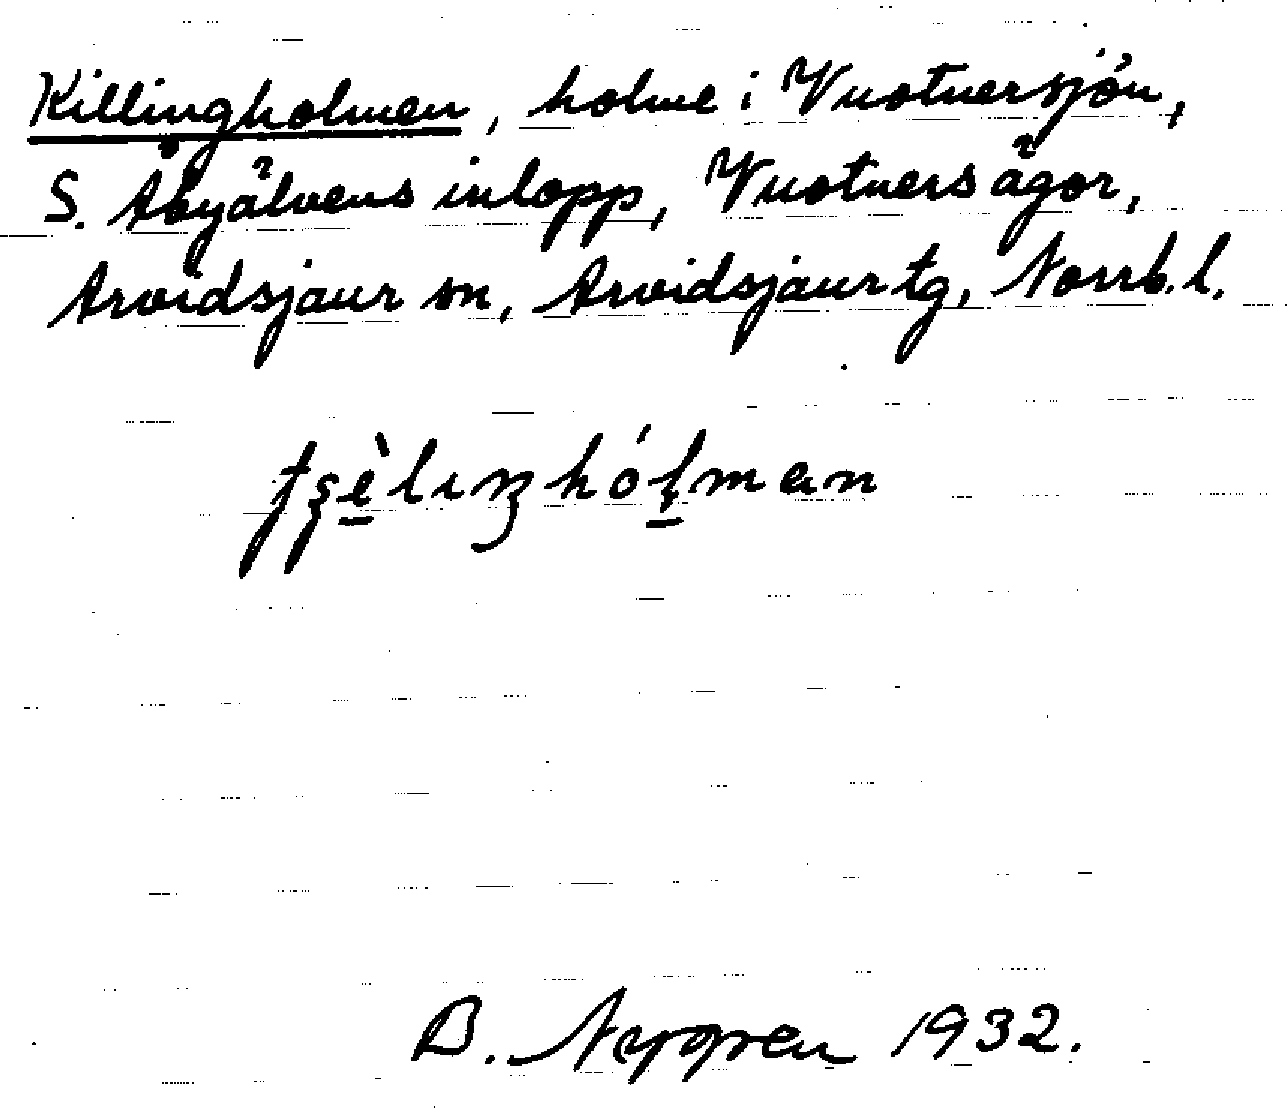 Killingholmen, holme i Vuotnersjön,
S. Åbyälvens inlopp, Vuotners ägor,
Arvidsjaur sn, Arvidsjaur tg, Norrb. l.
B. Nygren 1932.